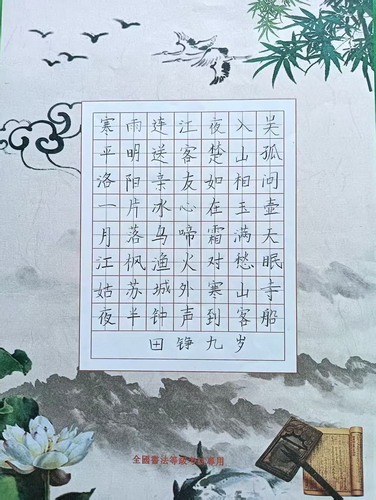 寒雨连江夜入吴
平明送客楚山孤
洛阳亲友如相问
一片冰心在玉壶
月落乌啼霜满天
江枫渔火对愁眠
姑苏城外寒山寺
夜半钟声到客船
田铮九岁
全國書法等級考試專用